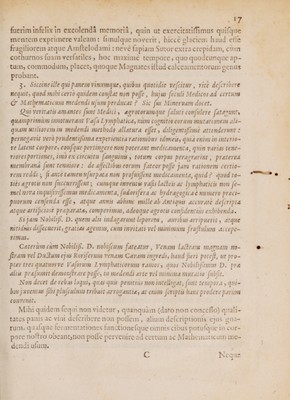 17
fuerim infelix in excolendâ memoriâ, quin ut exercitatissimus quisque
mentem exprimere valeam: simulque noverit, hiccè glaciem haud esse
fragiliorem atque Amstelodami: nevè sapiam Sitor extra crepidam, cùm
cothurnos suam versatiles, hoc maxime tempore, quo quodcunque ap-
tum, commodum, placet, quaque Magnates istud calceamentorum genus
probant.
5. Siccine ille qui panem vinumque, quibus quotidie vescitur, ritè describere
nequit, quod meo certò quidem exceptat non posse, hujus seculi Medicos ad certum
& Mathematicum medendi usum perducat? Sic sus Minervam docet.
Qui veritatis amantes sunt Medici, agrotorumque saluti consulere satagunt,
quamprimum innotuerunt Vasa Lymphatica, num cognitio eorum mutationem ali-
quam meliorem in medendi methodo allatura esset, diligentissimè attenderunt:
pervestigavit verò prudentissima experientia rationibus idoneis, quid enim in interio-
re latent corpore, eousque pertingere non poterant medicamenta, quin varias tene-
riores portiones, imò ex circuitu sanguinis, totum corpus peragrarint, praeterea
membranâ sunt tenuiori: de effectibus rerum fateor posse jam rationem certio-
rem reddi, si ancè tamen usurpata non profuissent medicamenta, quid? quod ro-
bis agentia non fuerint: cumque inventis vasis lacteis ac lymphaticis non se-
mel nota impurissima medicamenta, sudorifera & hydragoga ad munera praci-
puorum censenda esse, atque annis abhinc mille ab Antiquis accuratè descripta
atque artificiosè praeparata, comperimus, adeoque agentia confidentius exhibenda.
Et jam Nobiliss. D. quem alii indagarunt leporem, auribus arripuisti, atque
nitidius dissecuisti, gratias agentus, cum invitas vel minimum frustulum accepe-
rimus.
Caeterùm eùm Nobiliss. D. nobilium fateatur, Venam lacteam magnam no-
stram vel Ductum ejus Roriferum venam Cavam ingredi, haud facit potest, ut pro-
pter eres quatuorve Vasorum Lymphaticorum ramos, quos Nobilissimus D. prae
aliis praesumit demonstrare posse, in medendi arte vel minima mutatio subsit.
Non decet de rebus loqui, quas quis penitius non intelligat, sunt tempora, qui-
bus juvenem sibi plus sensus tribuit arrogantiae, at enim scriptis hanc prodere parùm
convenit.
Mihi quidem sequi non videtur, quanquam (dato non concesso) quali-
tates panis ac vini describere non possem, alium descriptionis ejus gna-
rum, quasque fermentationes functionesque omnis cibus potusque in cor-
pore nostro obeant, non posse pervenire ad certum ac Mathematicum me-
dendi usum.
C
Neque